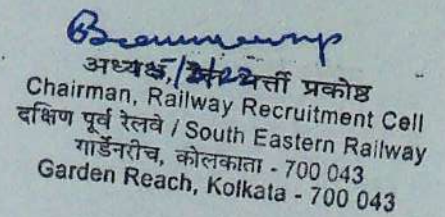 अध्यक्ष, भर्ती प्रकोष्ठ
Chairman, Railway Recruitment Cell
दक्षिण पूर्व रेलवे / South Eastern Railway
गार्डेनरीच, कोलकाता - 700 043
Garden Reach, Kolkata - 700 043